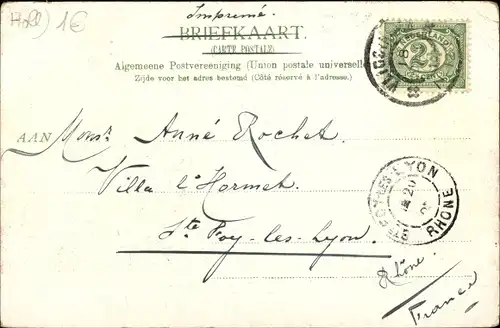 Holl) 1€
Imprimé.
BRIEFKAART.
(CARTE POSTALE)
Algemeene Postvereeniging (Union postale universelle)
Zijde voor het adres bestemd (Côté réservé à l'adresse)
NEDERLAND
2½
CENT
AAN Monsr. Anné Rochet
Villa l'Hormet
Ste Foy-les-Lyon.
Rhône.
France
LYON
RHONE